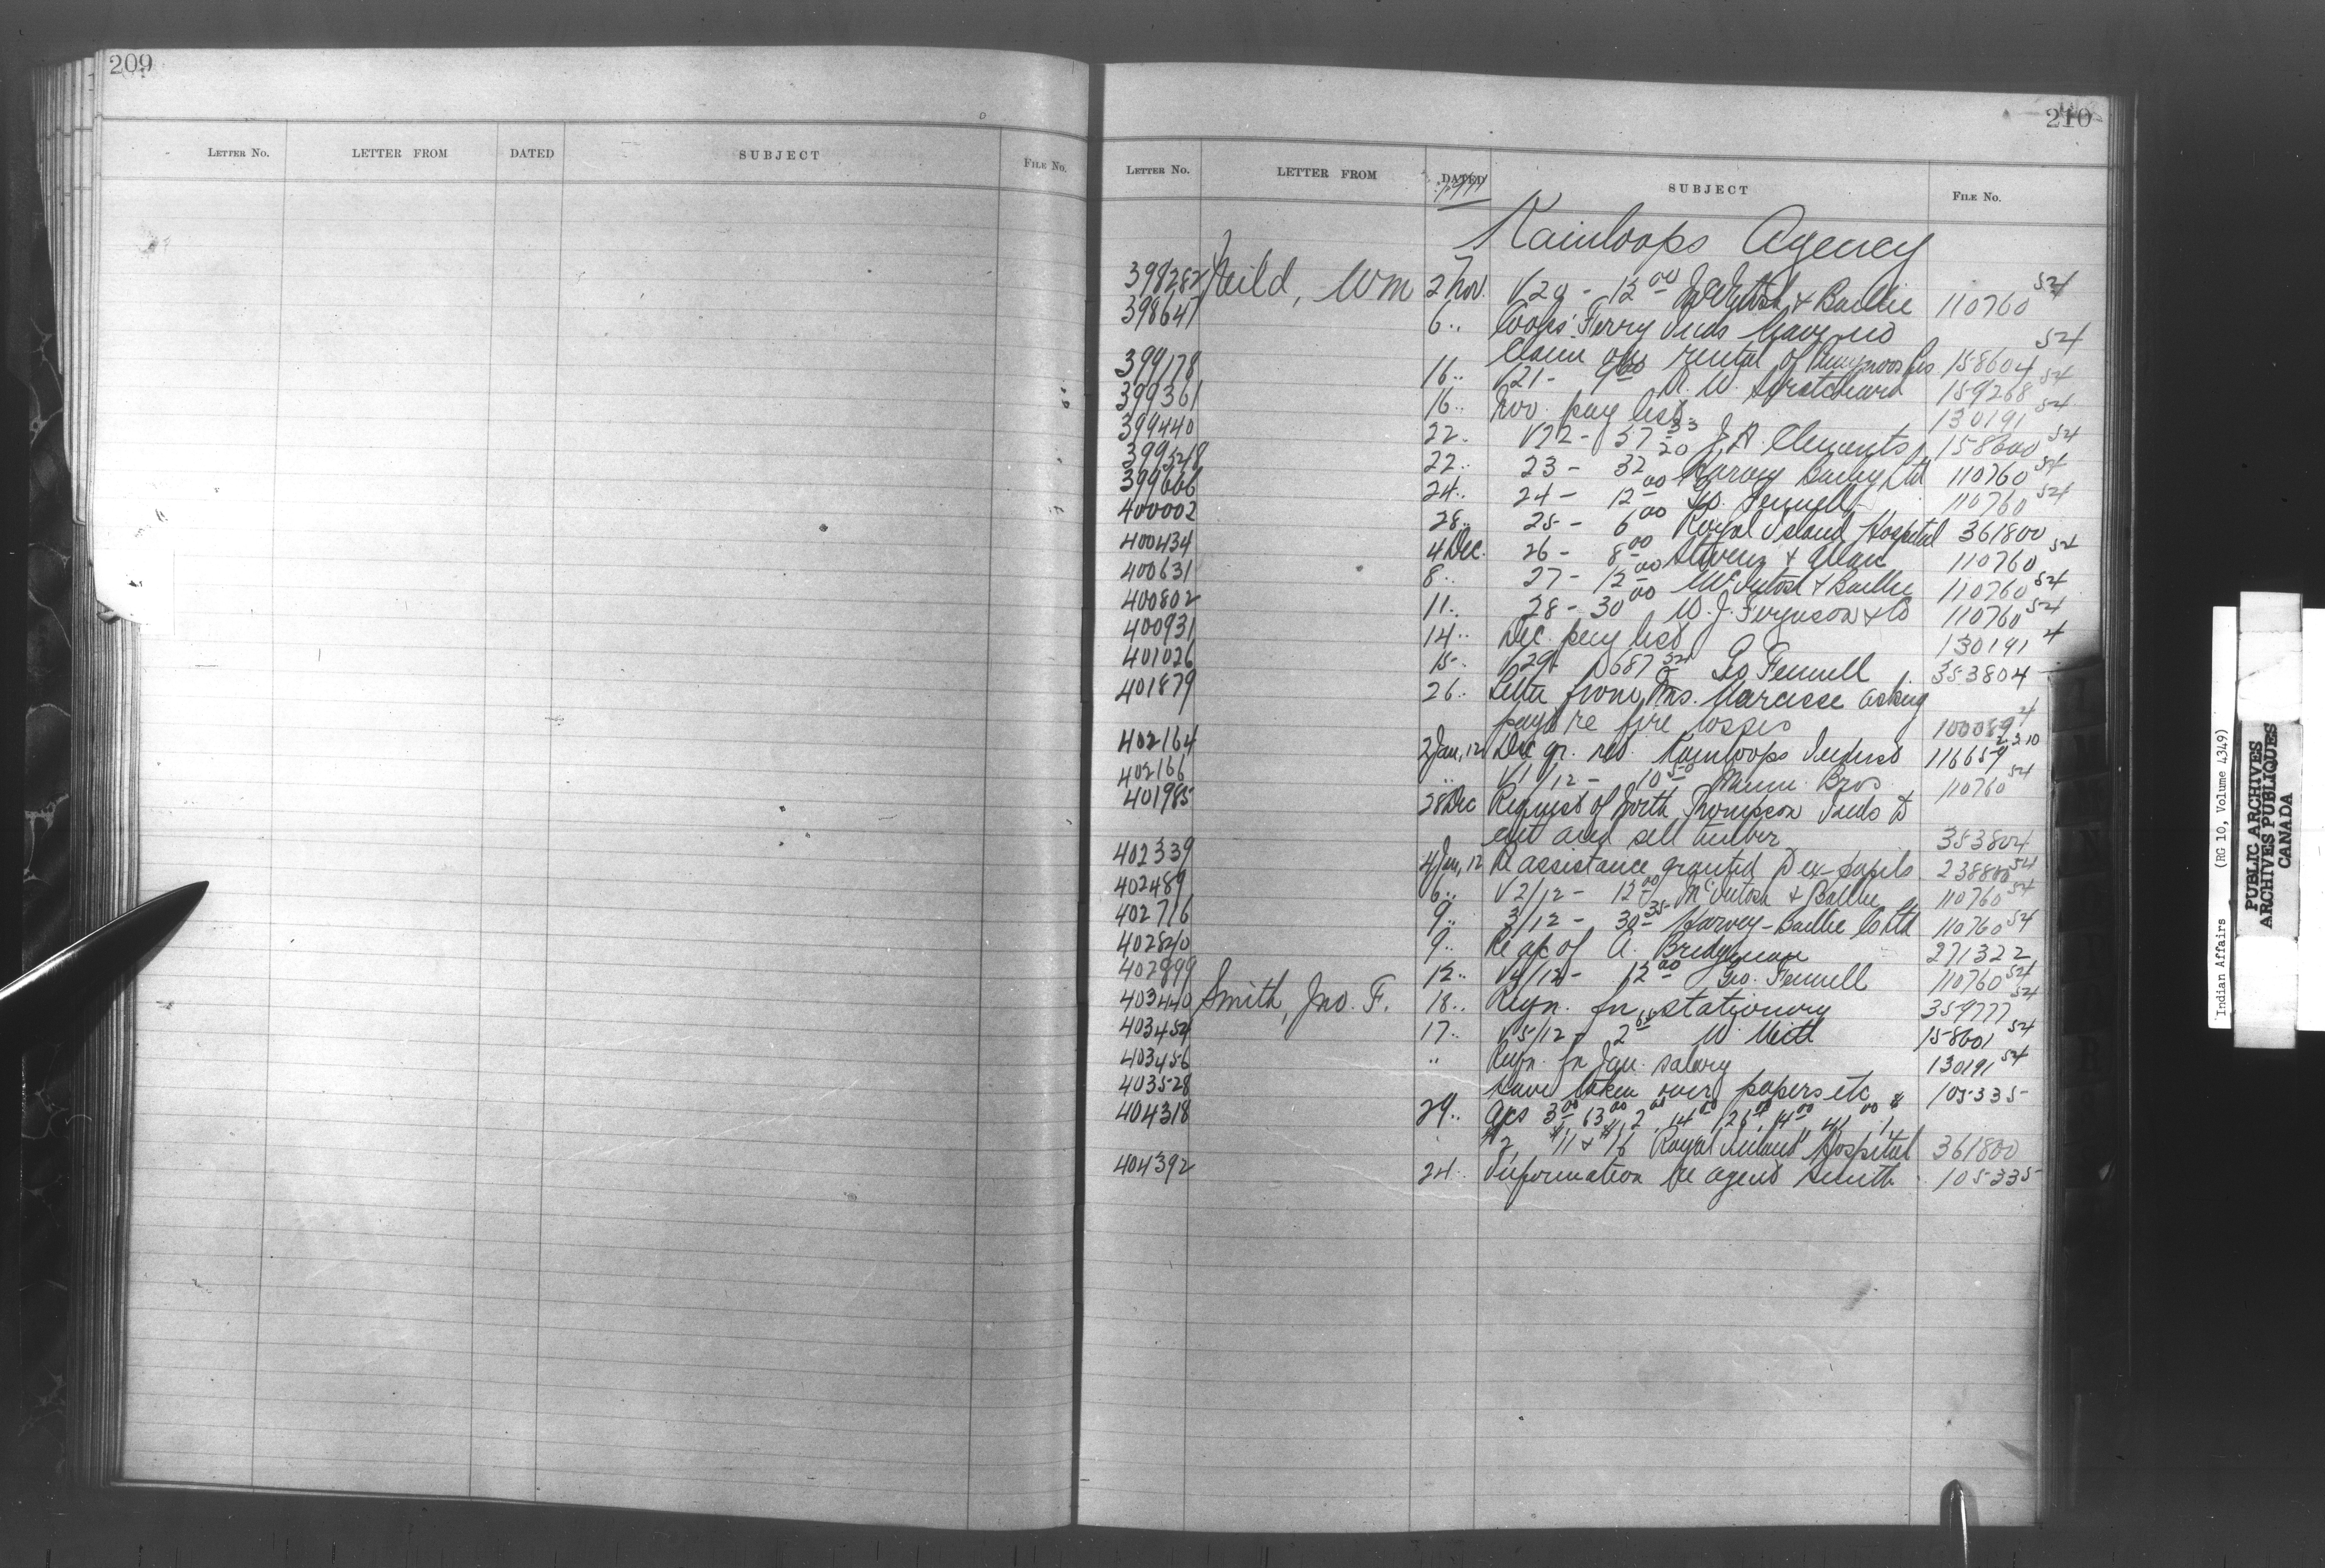 209
LETTER NO. LETTER FROM DATED SUBJECT FILE No.
210
LETTER NO. LETTER FROM DATED SUBJECT FILE No.
1911
Kamloops Agency
398282 Neild, Wm 2 Nov. V20 - 12 00 McIntosh & Baillie 110760 54
398641 6 .. Cooks' Ferry Inds have no 54
claim on rental of 158604
399178 16 .. V21 - 9 60 W. 159268 54
399361 16 .. Nov. pay list 130191 54
399440 22 . V22 - 57 33 J. A. Clements 158600 54
399528 22 .. 23 - 32 20 Harvey Bailey Ltd 110760 54
399666 24 .. 24 - 12 00 Geo. Fennell 110760 54
400002 28 .. 25 - 6 00 Royal Inland Hospital 361800
400434 4 Dec. 26 - 8 00 Stevens & 110760 54
400631 8 .. 27 - 12 00 McIntosh & Baillie 110760 54
400802 11 .. 28 - 30 00 W. J. Ferguson & Co 110760 54
400931 14 .. Dec. pay list 130191 4
401026 15 .. V29 - 687 Geo Fennell 353804
401879 26 .. Letter from Mrs. Narcisse asking
payt re fire losses 100089 4
402164 2 Jan, 12 Dec qr. ret Kamloops Indust 116659 2310
402166 .. V1/12 - 10 50 Mann Bros 110760 54
401985 28 Dec Request of North Thompson Inds to
cut and sell timber 353804
402339 4 Jan, 12 Re assistance granted to ex-pupils 238880 54
402489 6 .. V2/12 - 12 00 McIntosh & Baillie 110760 54
402716 9 .. 3/12 - 30 35 Harvey-Baillie Co Ltd 110760 54
402840 9 .. Re a/c of A. Bridgman 271322
402999 12 .. V4/12 - 12 00 Geo. Fennell 110760 54
403440 Smith, Jno. F. 18 .. Reqn. for stationery 359777 54
403454 17 .. V5/12 - 2 65 W. 158601 54
403456 .. Reqn. for Jan. salary 130191 54
403528 Have taken over papers etc 105335
404318 29 .. a/cs 3 00 63 00 2 00 14 00 126 00 14 00 41 00 # 1,
#2, #11 & #16 Royal Inland Hospital 361800
404392 24 .. Information re agent Smith 105335
Indian Affairs (RG 10, Volume 4349)
PUBLIC ARCHIVES
ARCHIVES PUBLIQUES
CANADA